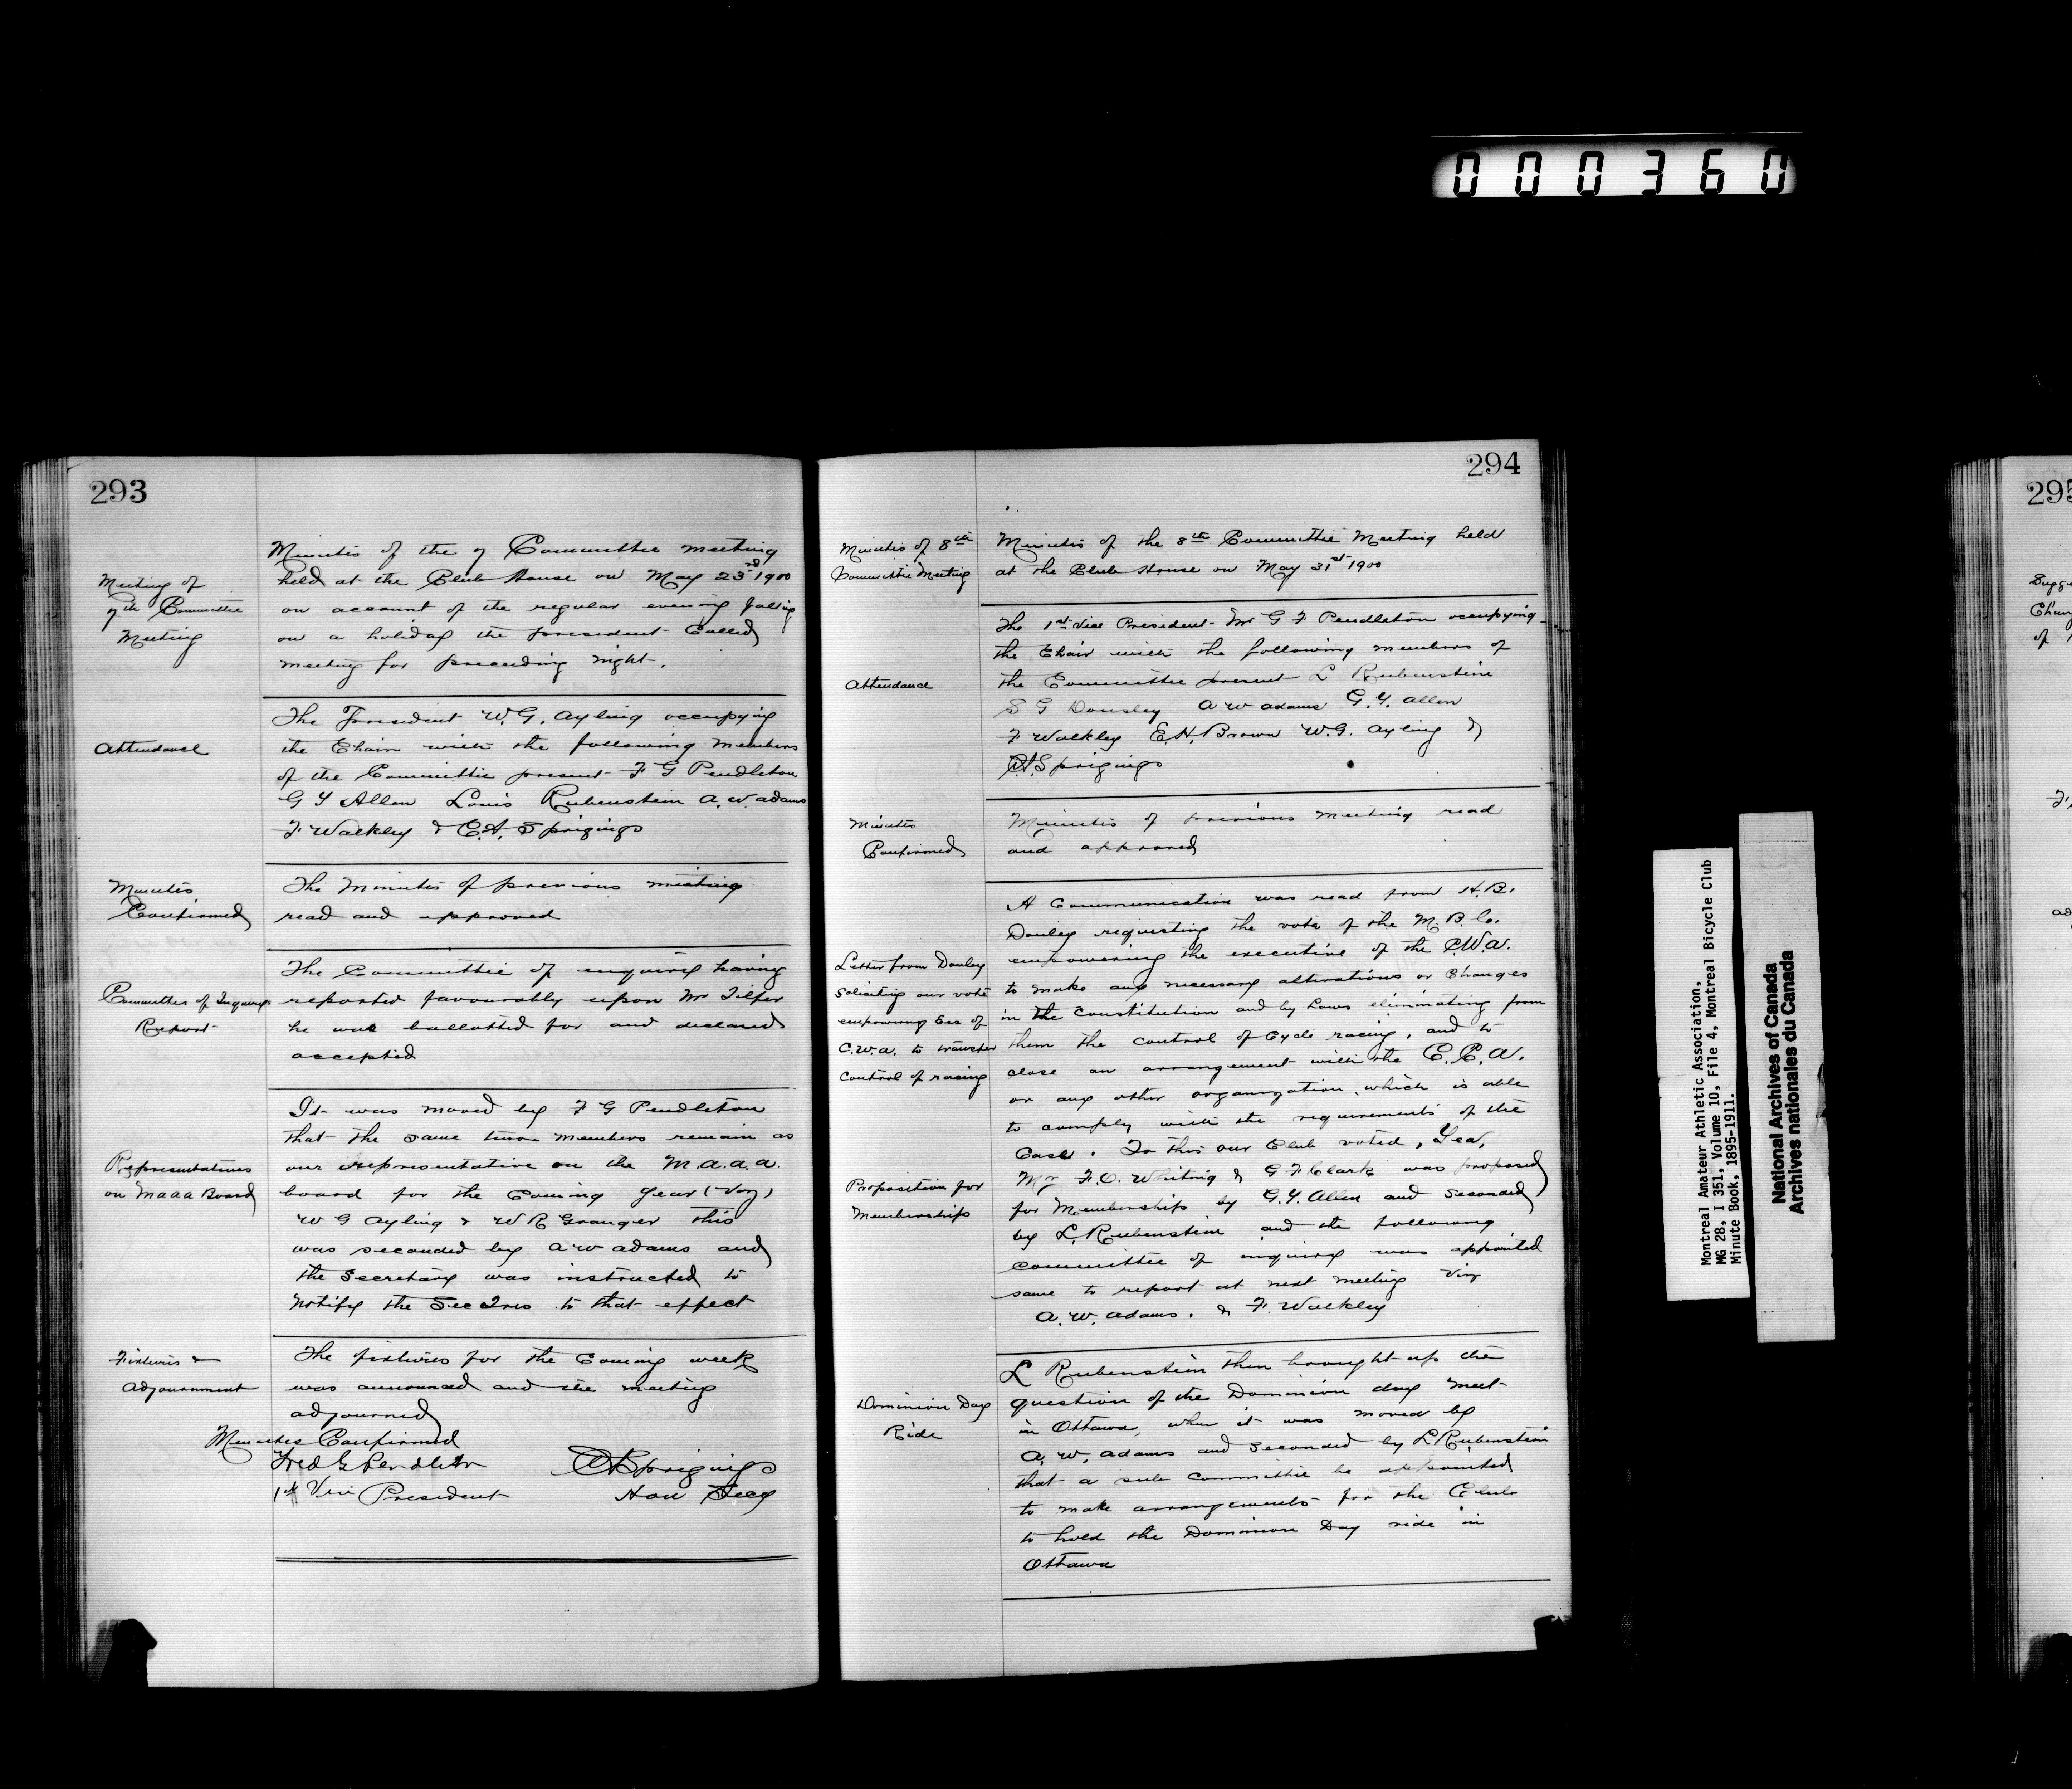 000360
293
Minutes of the 7 Committee meeting
held at the Club House on May 23rd 1900
on account of the regular evening falling
on a holiday the president called
meeting for preceeding night.
Meeting of
7th Committee
Meeting
The President W. G. Ayling occupying
the Chair with the following members
of the Committee present F G Pendleton
G Y Allen Louis Rubenstein A. W. Adams
F Walkley & C. A. Sprigings
Attendance
The Minutes of previous meeting
read and approved
Minutes
Confirmed
The Committee of enquiry having
reported favourably upon Mr
he was ballotted for and declared
accepted
Committee of Inquirys
Report
It was moved by F G Pendleton
that the same two members remain as
our representative on the M.A.A.A.
board for the Coming Year (Viz)
W G Ayling & W R Granger this
was seconded by A W Adams and
the Secretary was instructed to
Notify the Sec Tres to that effect
Representatives
on MAAA Board
The fixtures for the Coming week
was announced and the meeting
adjourned
Fixtures &
Adjournment
Minutes Confirmed
Fred G Pendleton
1st Vice President
CA Sprigings
Hon Secy
294
Minutes of 8th
Committee Meeting
Minutes of the 8th Committee Meeting held
at the Club House on May 31st 1900
The 1st Vice President Mr G F Pendleton occupying
the Chair with the following members of
the Committee present L Rubenstein
S G Dousley A W Adams G. Y. Allen
F Walkley E. H. Brown W. G. Ayling &
CA Sprigings
Attendance
Minutes
Confirmed
Minutes of previous meeting read
and approved
A Communication was read from H. B.
Donley requesting the vote of the M. B. C.
empowering the executive of the C.W.A.
to make any necessary alterations or Changes
in the Constitution and by Laws eliminating from
them the control of Cycle racing, and to
close an arrangement with the C. C. A.
or any other organization which is able
to comply with the requirements of the
Case. To this our Club voted, Yea,
Letter from Donley
Soliciting our vote
empowering Exe of
C.W.A. to transfer
Control of racing
Mr F. O. Whiting & G F Clark was proposed
for Membership by G. Y. Allen and Seconded
by L. Rubenstein and the following
committee of inquiry was appointed
same to report at next meeting Viz
A. W. Adams. & F. Walkley
Proposition for
Memberships
L Rubenstein then brought up the
question of the Dominion day meet
in Ottawa, when it was moved by
A. W. Adams and seconded by L Rubenstein
that a sub committee be appointed
to make arrangements for the Club
to hold the Dominion Day ride in
Ottawa
Dominion Day
Ride
Montreal Amateur Athletic Association,
MG 28, I 351, Volume 10, File 4, Montreal Bicycle Club
Minute Book, 1895-1911.
National Archives of Canada
Archives nationales du Canada
295